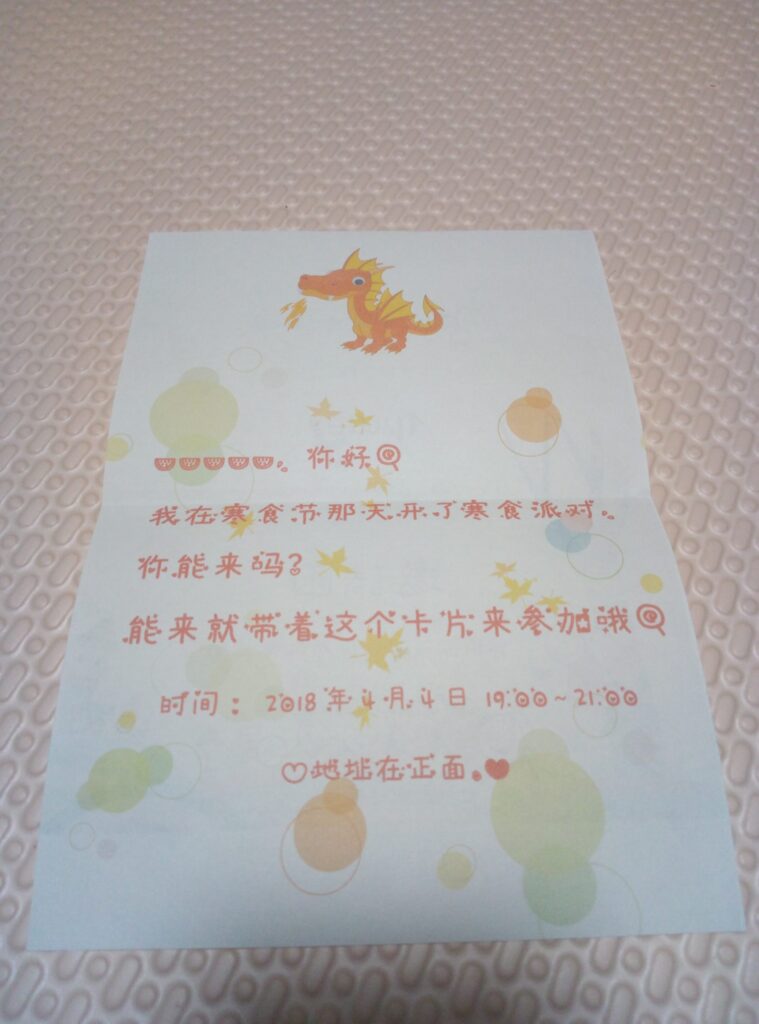 。你好
我在寒食节那天开了寒食派对。
你能来吗?
能来就带着这个卡片来参加哦
时间：2018年4月4日 19:00~21:00
♡地址在正面。♥